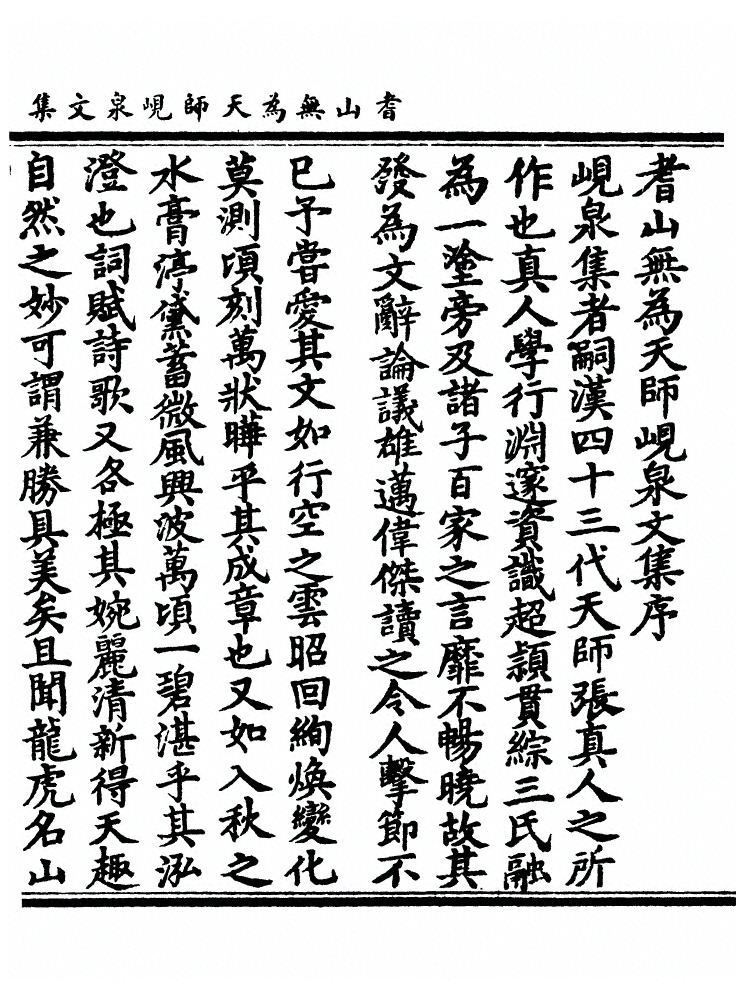 耆山無為天師峴泉文集
耆山無為天師峴泉文集序
峴泉集者嗣漢四十三代天師張真人之所
作也真人學行淵邃資識超穎貫綜三氏融
為一塗旁及諸子百家之言靡不暢曉故其
發為文辭論議雄邁偉傑讀之令人擊節不
已予嘗愛其文如行空之雲昭回絢煥變化
莫測頃刻萬狀曄乎其成章也又如入秋之
水膏渟黛蓄微風興波萬頃一碧湛乎其泓
澄也詞賦詩歌又各極其婉麗清新得天趣
自然之妙可謂兼勝具美矣且聞龍虎名山